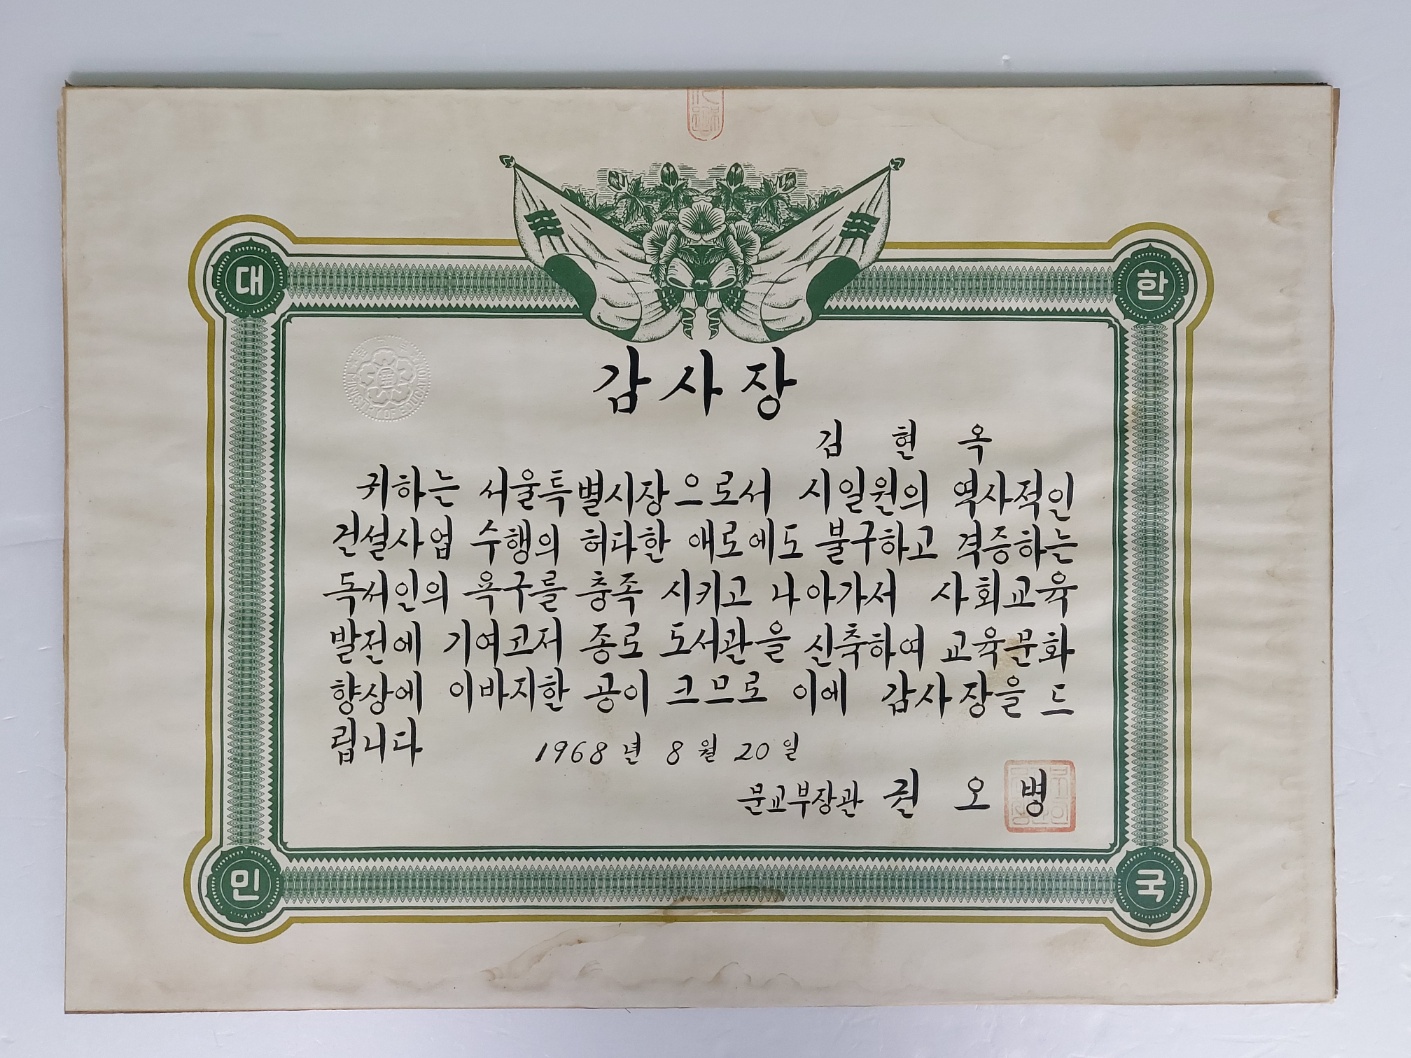 대 한
감사장
김 현 옥
귀하는 서울특별시장으로서 시일원의 역사적인
건설사업 수행의 허다한 애로에도 불구하고 격증하는
독서인의 욕구를 충족 시키고 나아가서 사회교육
발전에 기여고저 종로 도서관을 신축하여 교육문화
향상에 이바지한 공이 크므로 이에 감사장을 드
립니다
1968 년 8 월 20 일
문교부장관 권 오 병
민 국